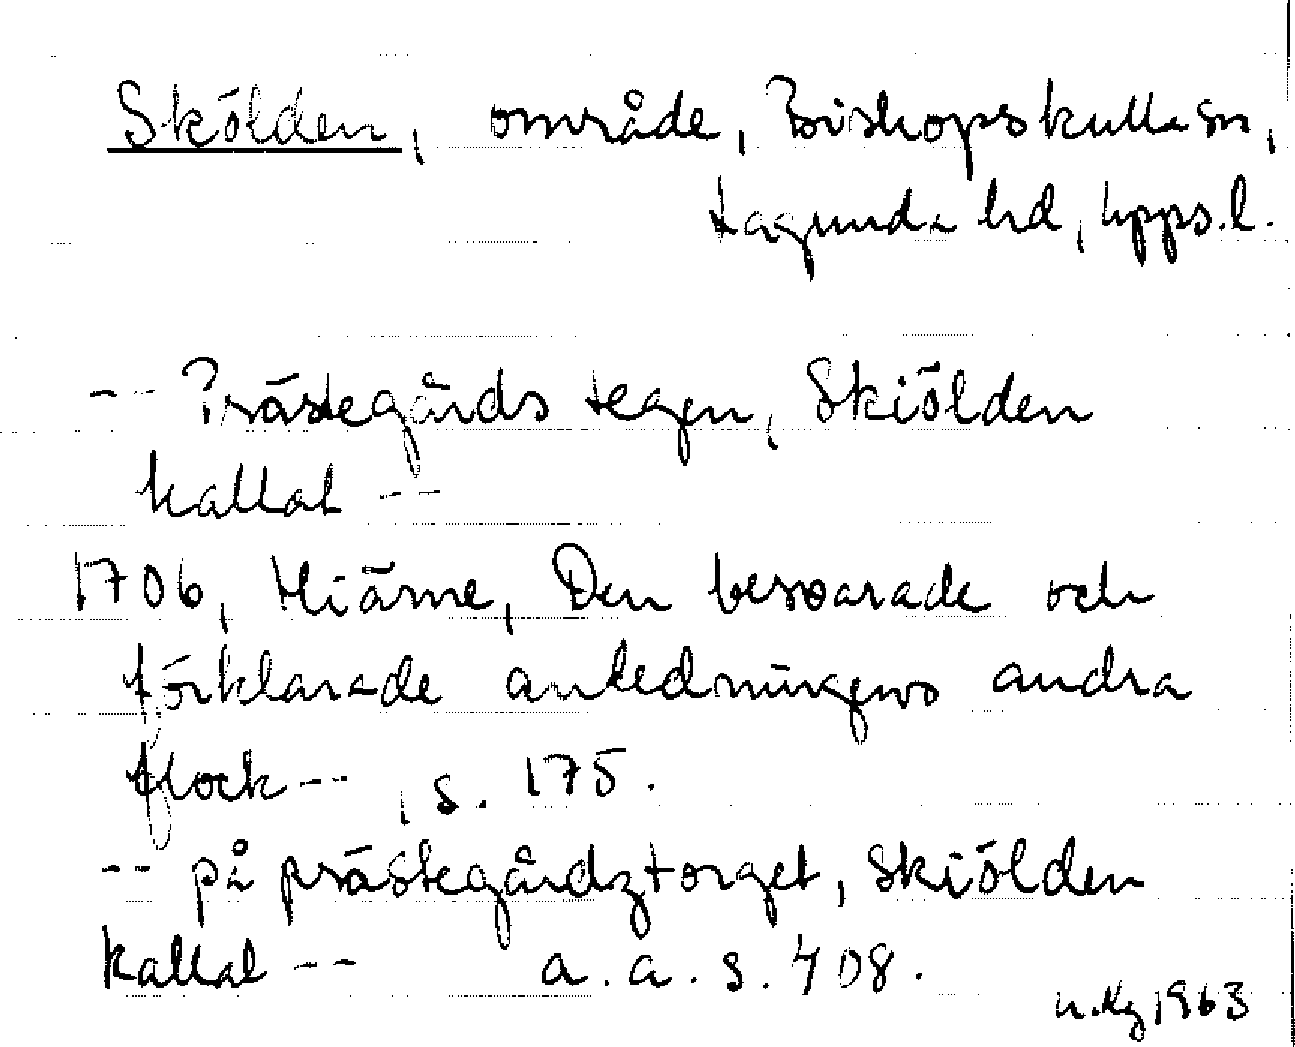 Skölden, område, Biskopskulla sn,
Lagunda hd, Upps.l.
-- Prästegårds tegen, Skiölden
kallat --
1706, Hiärne, Den besvarade och
förklarade anledningens andra
flock --, s. 175.
-- på prästegårdztorget, Skiölden
kallat -- a.a. s. 408.